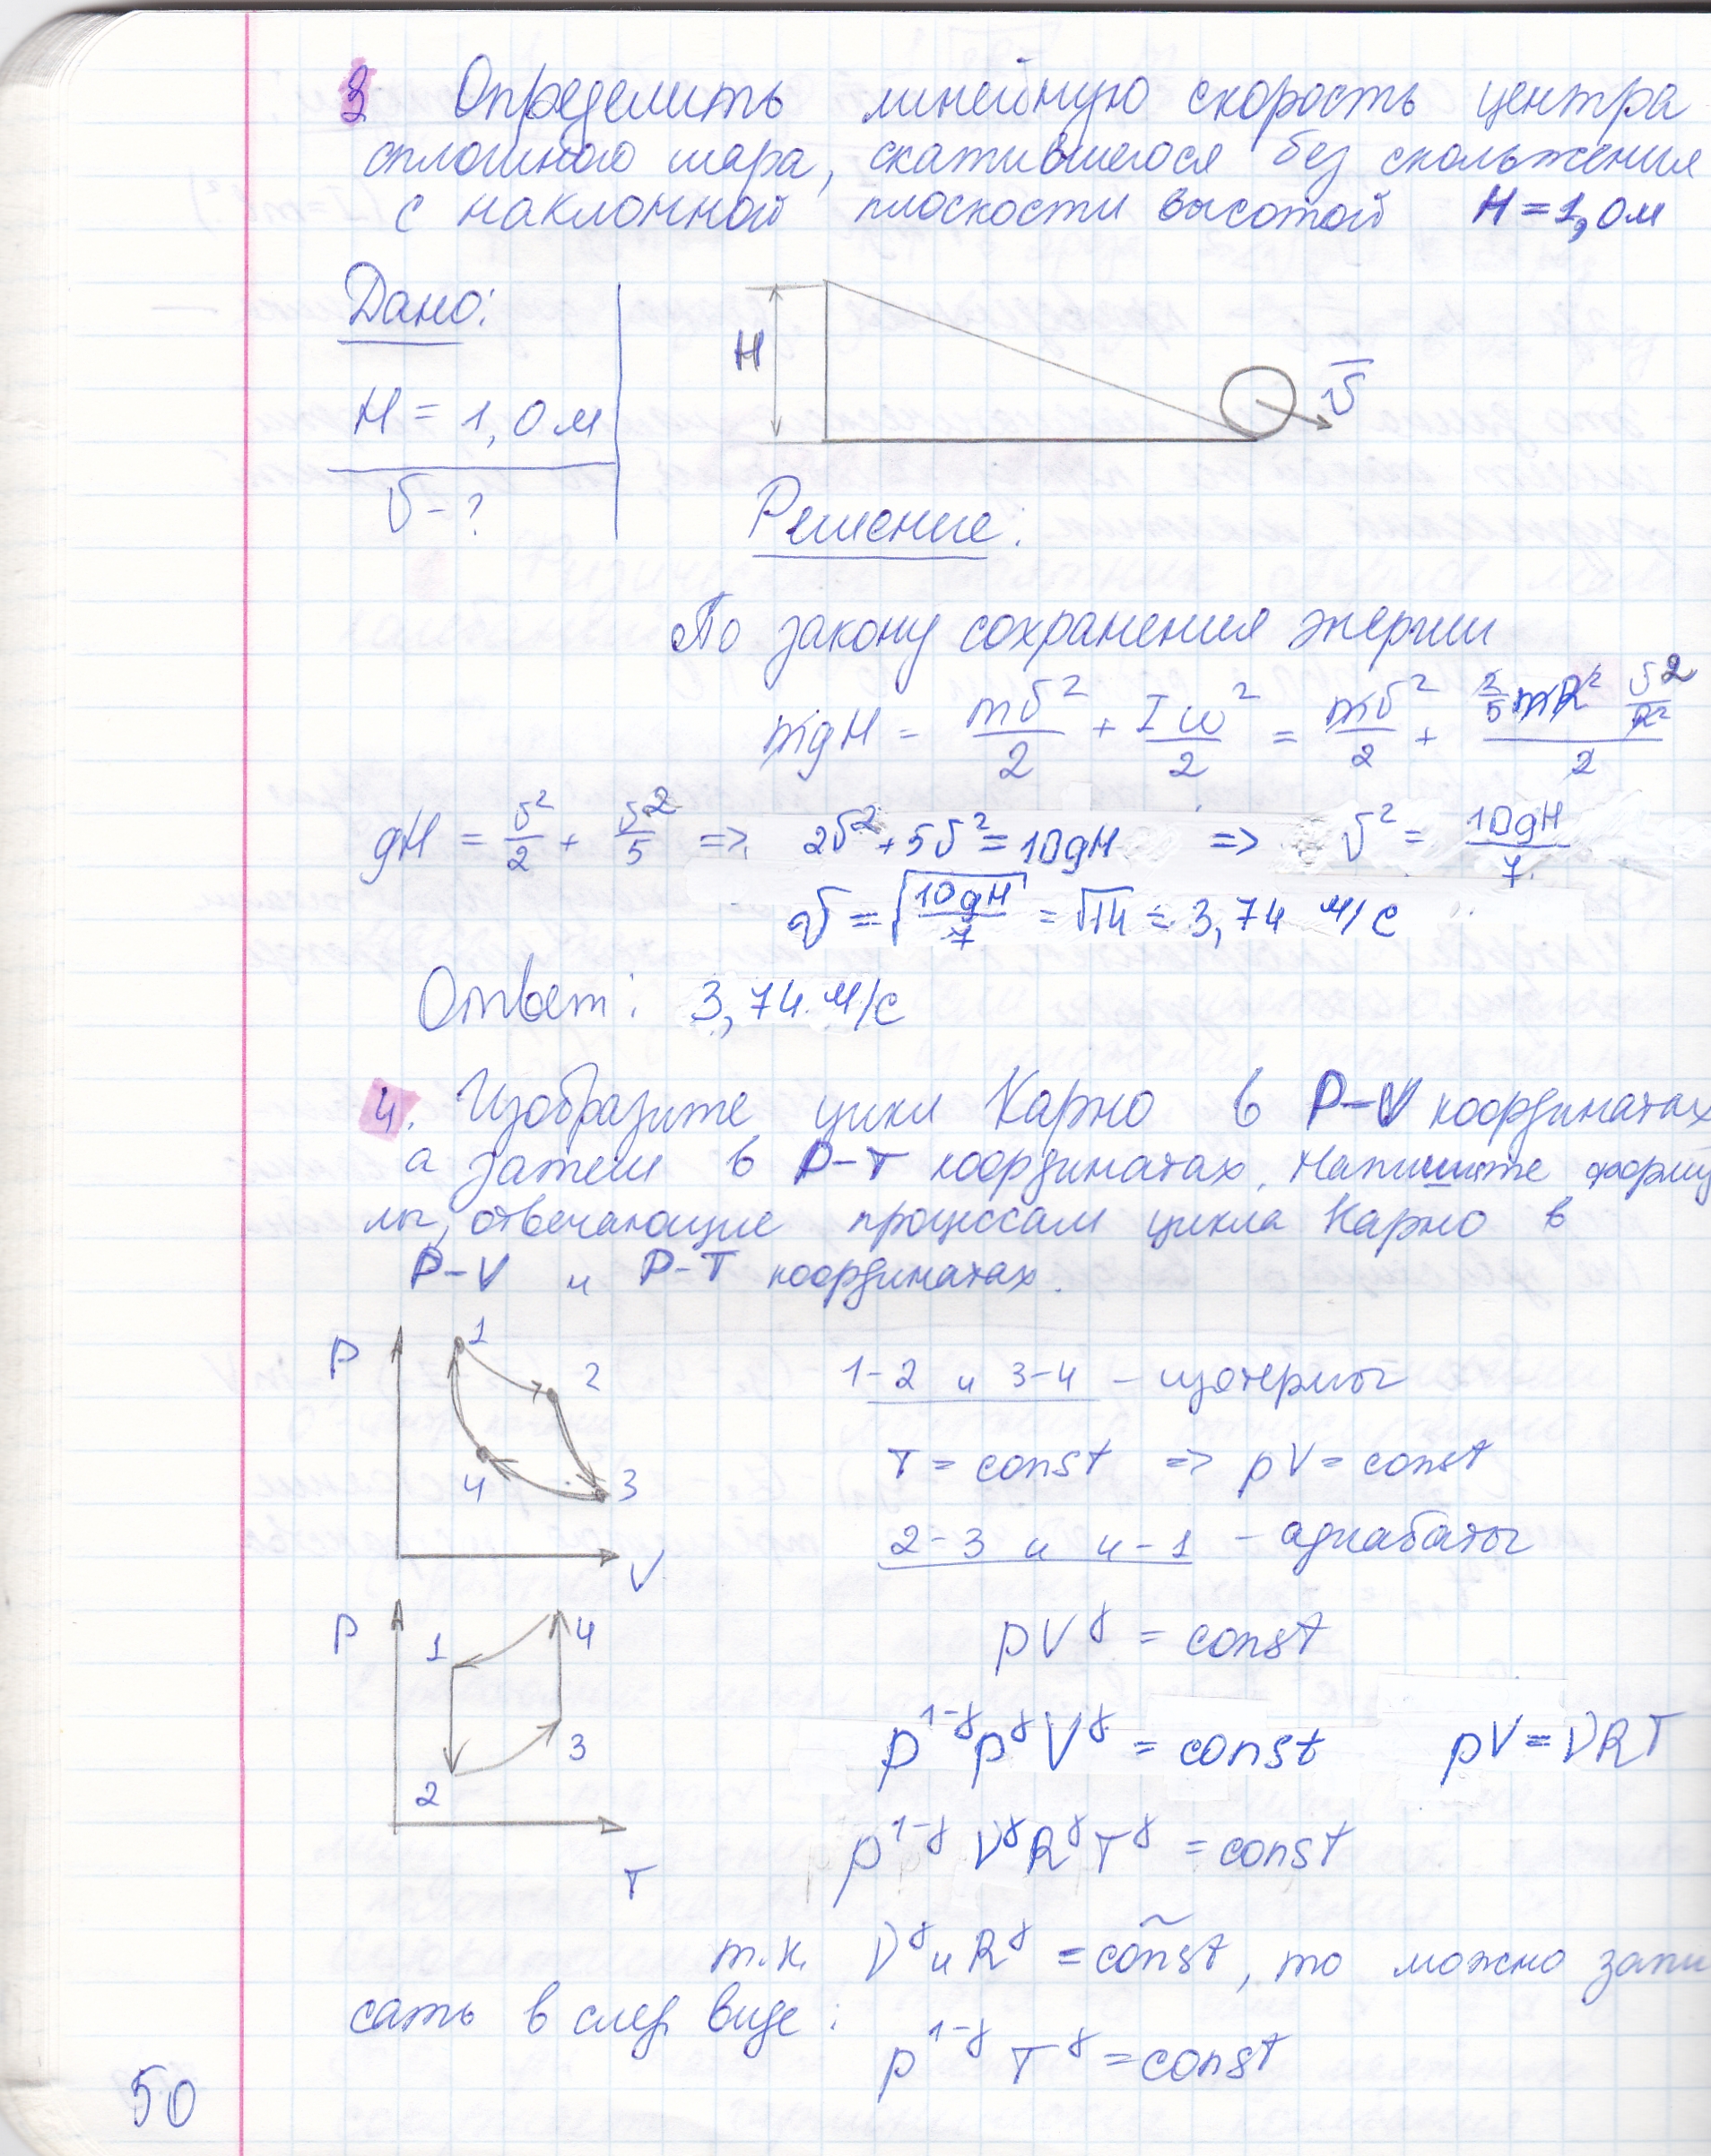 3 Определить линейную скорость центра
сплошного шара, скатившегося без скольжения
с наклонной плоскости высотой H = 1,0 м
Дано:
H = 1,0 м
υ - ?
H
υ̅
Решение:
По закону сохранения энергии
mgH = mυ²/2 + Iω²/2 = mυ²/2 + (2/5 mR² υ²/R²)/2
gH = υ²/2 + υ²/5 => 2υ² + 5υ² = 10gH => υ² = 10gH/7
υ = √(10gH/7) = √14 = 3,74 м/с
Ответ: 3,74 м/с
4. Изобразите цикл Карно в P-V координатах
а затем в P-T координатах. Напишите форму
лы, отвечающие процессам цикла Карно в
P-V и P-T координатах.
P 1 2 3 4 V
1-2 и 3-4 - изотермы
T = const => pV = const
2-3 и 4-1 - адиабаты
P 1 4 3 2 T
pV^γ = const
p^(1-γ) p^γ V^γ = const pV = νRT
p^(1-γ) ν^γ R^γ T^γ = const
т.к. ν^γ и R^γ = const, то можно запи
сать в след виде:
p^(1-γ) T^γ = const
50